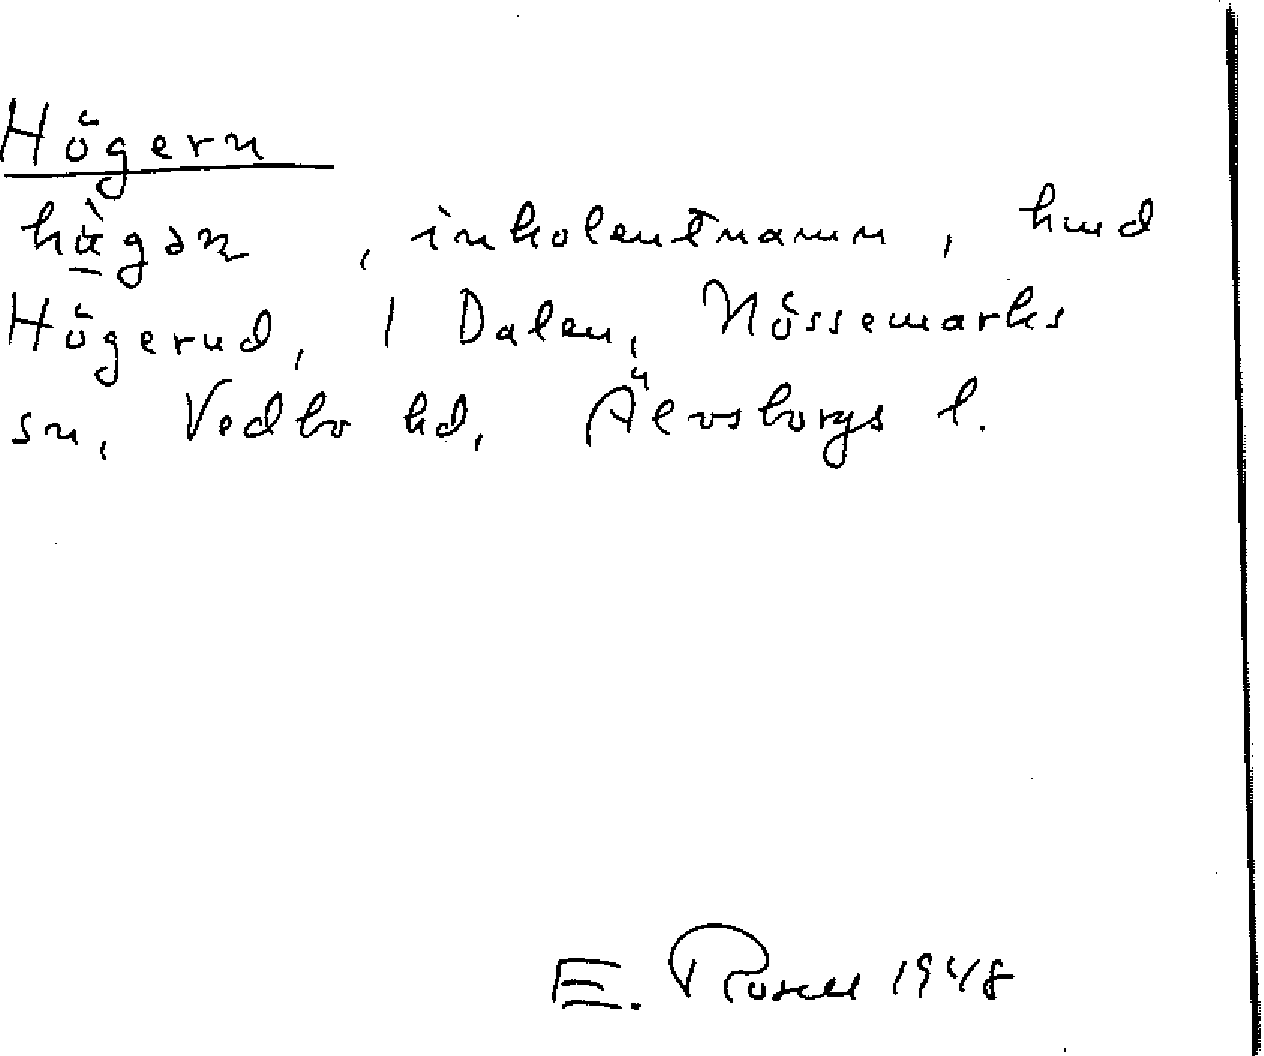 Högern
hägən, inkolentnamn, hmd
Högerud, 1 Dalen, Nössemarks
sn, Vedbo hd, Älvsborgs l.
E. Rosell 1948